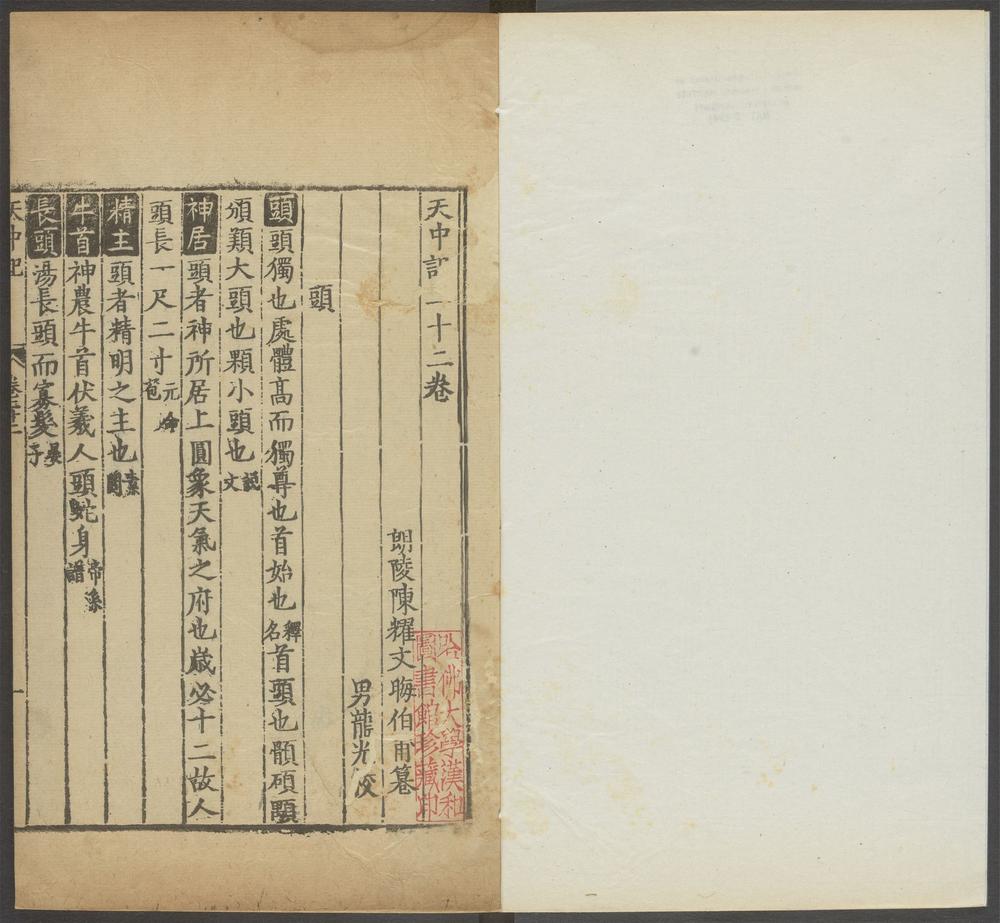 天中記 二十二卷
朗陵陳耀文晦伯甫纂
男龍光校
頭
頭頭獨也處體高而獨尊也首始也釋名首頭也顝碩顯
頒顙大頭也顆小頭也說文
神居頭者神所居上圓象天氣之府也歲必十二故人
頭長一尺二寸元命苞
精主頭者精明之主也素問
牛首神農牛首伏羲人頭蛇身帝系譜
長頭湯長頭而寡髮晏子
天中記 卷二十二 一
哈佛大學漢和
圖書館珍藏印